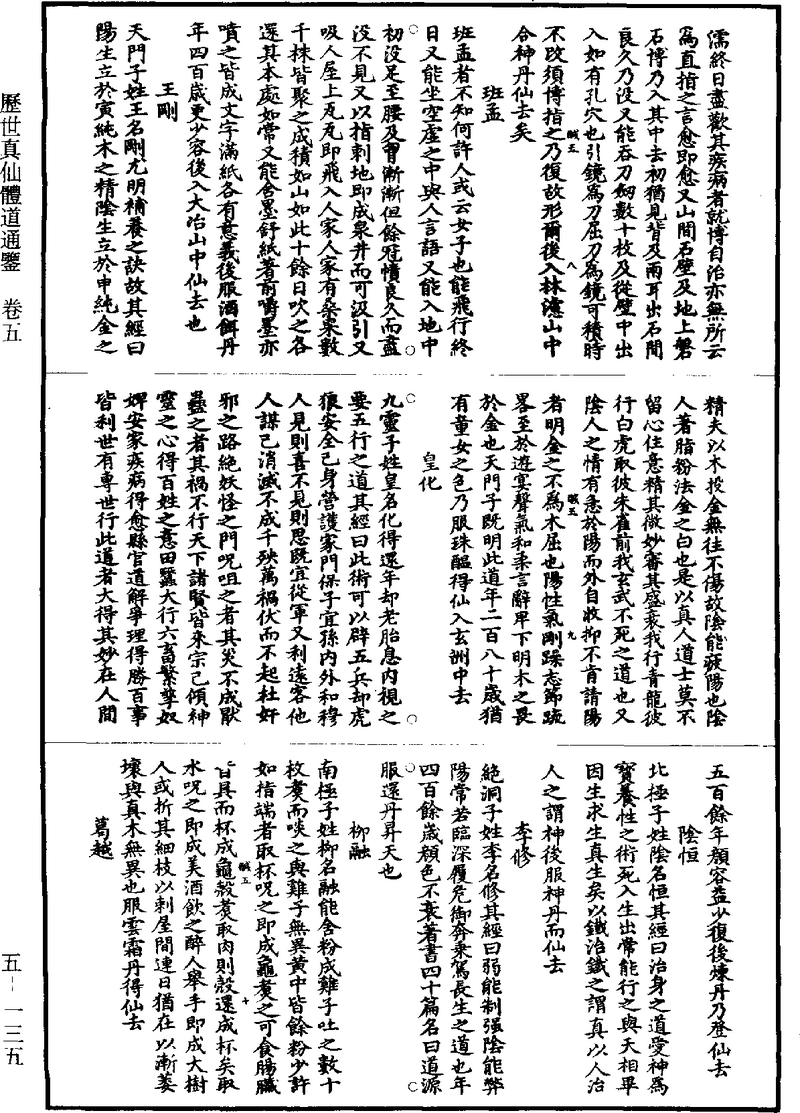 歷世真仙體道通鑒　卷五
五－一三五
濡終日盡歡其疾病者就博自治亦無所云
爲直指之言愈即愈又山間石壁及地上磐
石博乃入其中去初猶見背及兩耳出石間
良久乃沒又能吞刀劒數十枚及從壁中出
入如有孔穴也引鏡爲刀屈刀爲鏡可積時
不改須博指之乃復故形爾後入林慮山中
合神丹仙去矣
班孟
班孟者不知何許人或云女子也能飛行終
日又能坐空虛之中與人言語又能入地中
初沒足至腰及胷漸漸但餘冠幘良久而盡
沒不見又以指刺地即成泉井而可汲引又
吸人屋上瓦瓦即飛入人家人家有桑果數
千株皆聚之成積如山如此十餘日吹之各
還其本處如常又能含墨舒紙著前嚼墨亦
噴之皆成文字滿紙各有意義後服酒餌丹
年四百歲更少容後入大冶山中仙去也
王剛
天門子姓王名剛尤明補養之訣故其經曰
陽生立於寅純木之精陰生立於申純金之
精夫以木投金無往不傷故陰能疲陽也陰
人著脂粉法金之白也是以真人道士莫不
留心住意精其微妙審其盛衰我行青龍彼
行白虎取彼朱雀前我玄武不死之道也又
陰人之情有急於陽而外自收抑不肯請陽
者明金之不爲木屈也陽性氣剛躁志節踈
畧至於遊宴聲氣和柔言辭卑下明木之畏
於金也天門子旣明此道年二百八十歲猶
有童女之色乃服珠醞得仙入玄洲中去
皇化
九靈子姓皇名化得還年却老胎息內視之
要五行之道其經曰此術可以辟五兵却虎
狼安全己身營護家門保子宜孫內外和穆
人見則喜不見則思旣宜從軍又利遠客他
人謀己消滅不成千殃萬禍伏而不起杜奸
邪之路絶妖怪之門呪咀之者其災不成厭
蠱之者其禍不行天下諸賢皆來宗己傾神
靈之心得百姓之意田蠶大行六畜繁孳奴
婢安家疾病得愈縣官道解爭理得勝百事
皆利世有專世行此道者大得其妙在人間
五百餘年顏容益少復後煉丹乃登仙去
陰恒
北極子姓陰名恒其經曰治身之道愛神爲
寶養性之術死入生出常能行之與天相畢
因生求生真生矣以鐵治鐵之謂真以人治
人之謂神後服神丹而仙去
李修
絶洞子姓李名修其經曰弱能制強陰能弊
陽常若臨深履危御奔乘駕長生之道也年
四百餘歲顏色不衰著書四十篇名曰道源
服還丹昇天也
柳融
南極子姓柳名融能含粉成雞子吐之數十
枚煑而啖之與雞子無異黃中皆餘粉少許
如指端者取杯呪之即成龜煑之可食腸臟
皆具而杯成龜殻煑取肉則殻還成杯矣取
水呪之即成美酒飲之醉人舉手即成大樹
人或折其細枝以刺屋間連日猶在以漸萎
壞與真木無異也服雲霜丹得仙去
葛越